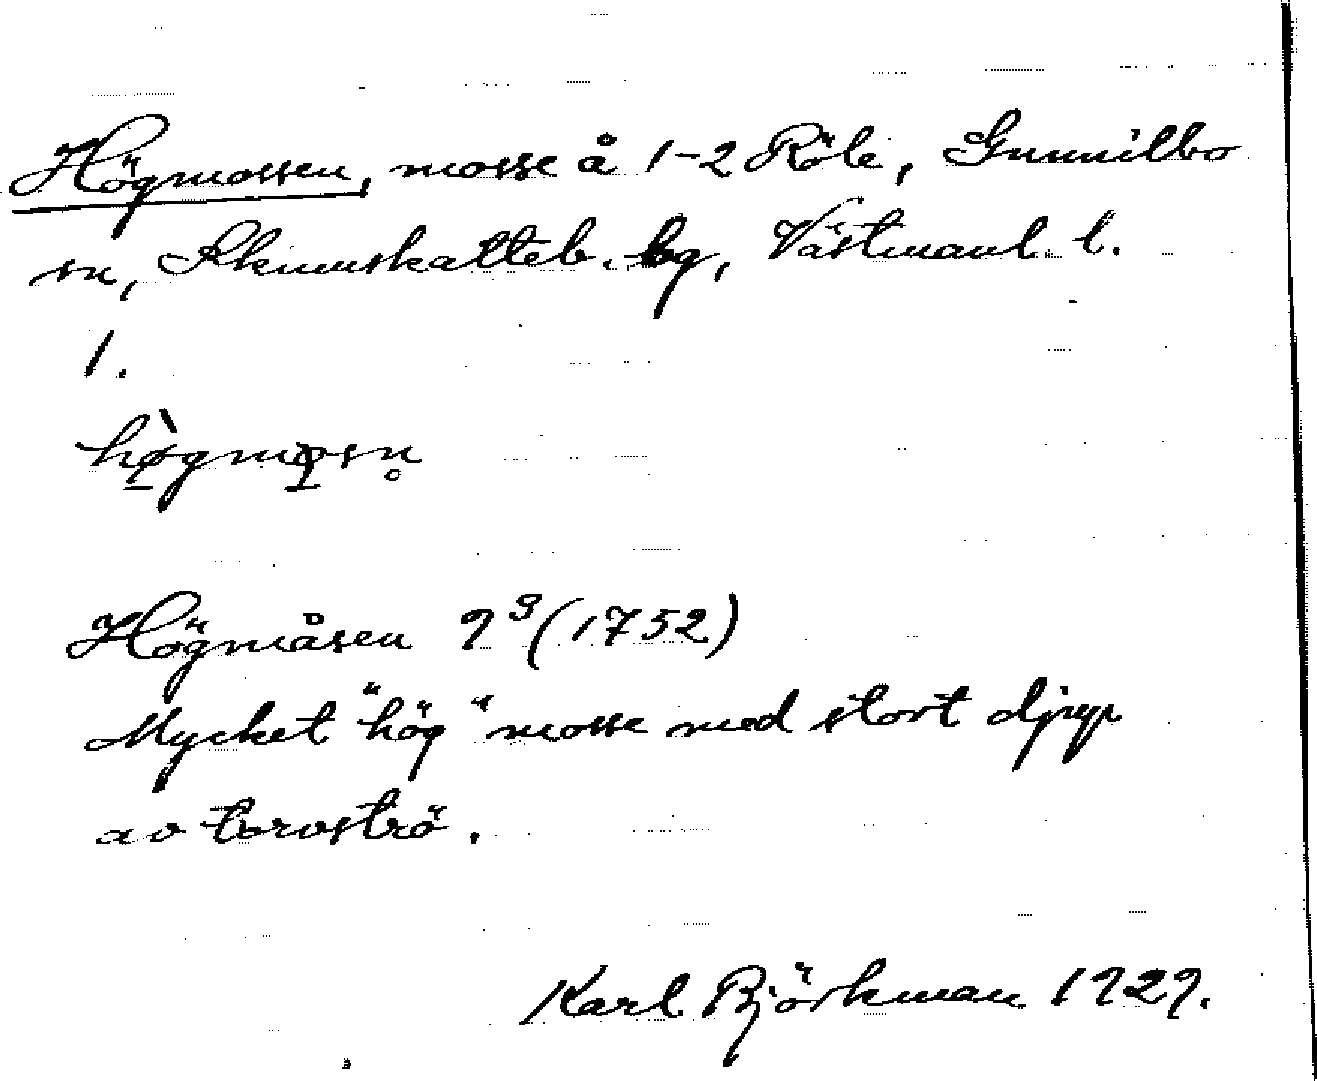 Högmossen, mosse å 1-2 Röle, Gunnilbo
sn, Skinnskatteb. bg, Västmanl. l.
1.
hø̀gmosn̥
Högmåsen 9³ (1752)
Mycket "hög" mosse med stort djup
av torvströ.
Karl Björkman 1929.